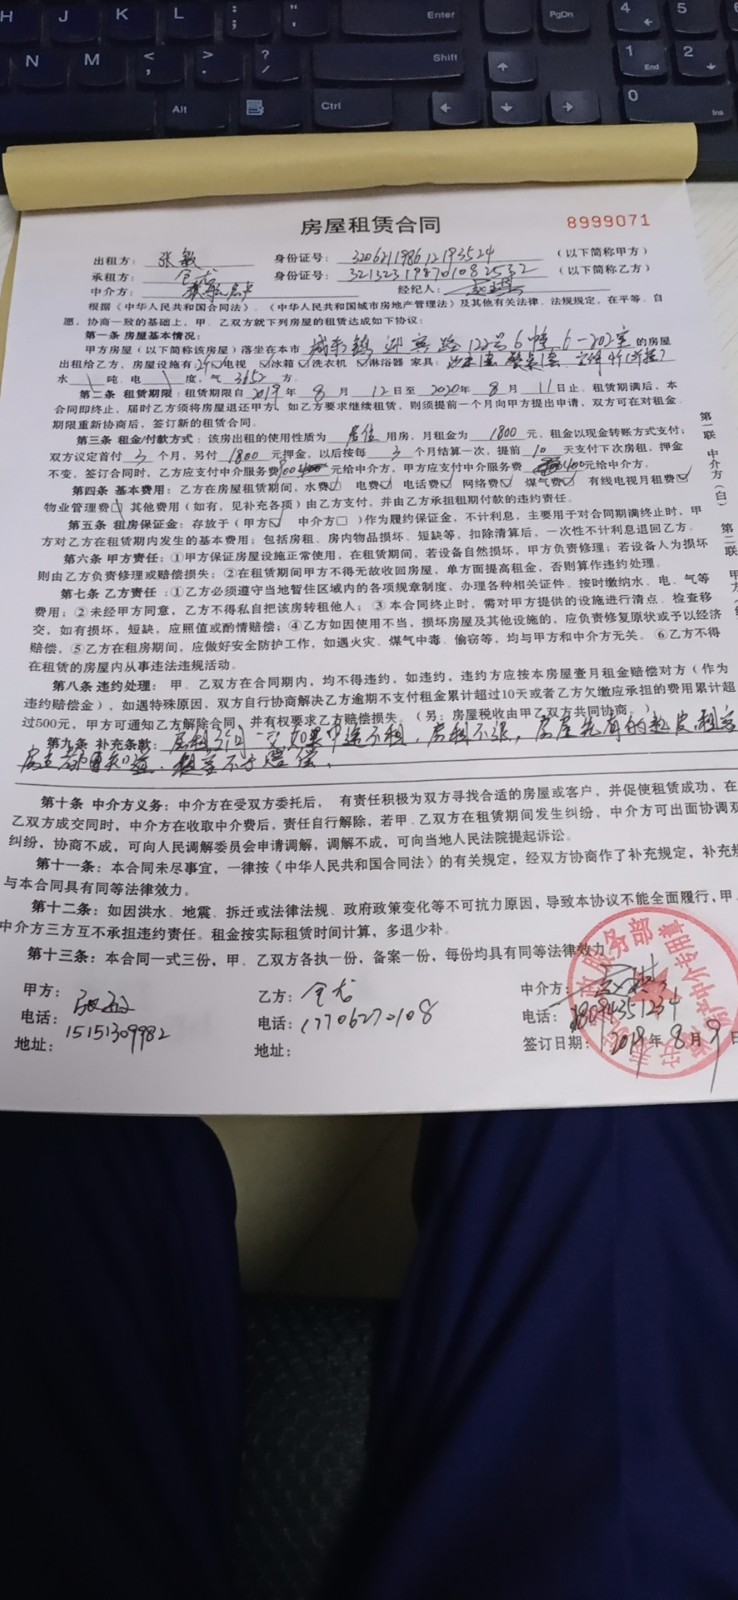 H J K L : ; " ' Enter PgDn 4 5
N M < , > . ? / Shift 1 End 2
Alt Ctrl 0 Ins
房屋租赁合同 8999071
出租方： 张敏 身份证号： （以下简称甲方）
承租方： 仝龙 身份证号： （以下简称乙方）
中介方： 经纪人：
根据《中华人民共和国合同法》、《中华人民共和国城市房地产管理法》及其他有关法律、法规规定，在平等、自
愿，协商一致的基础上，甲、乙双方就下列房屋的租赁达成如下协议：
第一条 房屋基本情况：
甲方房屋（以下简称该房屋）落坐在本市 城东镇 迎宾路122号6幢6-202室 的房屋
出租给乙方，房屋设施有：电视 冰箱 洗衣机 淋浴器 家具：
水 吨，电 度，气 3652 方。
第二条 租赁期限：租赁期限自2019年 8 月 12日至 2020年 8 月 11日止，租赁期满后，本
合同即终止，届时乙方须将房屋退还甲方，如乙方要求继续租赁，则须提前一个月向甲方提出申请，双方可在对租金、
期限重新协商后，签订新的租赁合同。
第三条 租金/付款方式：该房出租的使用性质为 居住 用房，月租金为 1800 元，租金以现金转账方式支付；
双方议定首付 3 个月，另付 1800 元押金，以后按每 3 个月结算一次，提前 10 天支付下次房租，押金
不变，签订合同时，乙方应支付中介服务费 元给中介方，甲方应支付中介服务费 400元给中介方。
第四条 基本费用：乙方在房屋租赁期间，水费☑ 电费☑ 电话费☑ 网络费☑ 煤气费☑ 有线电视月租费☑
物业管理费□ 其他费用（如有，见补充各项）由乙方支付，并由乙方承担租期付款的违约责任。
第五条 租房保证金：存放于（甲方☑ 中介方□）作为履约保证金，不计利息，主要用于对合同期满终止时，甲
方对乙方在租赁期内发生的基本费用；包括房租、房内物品损坏、短缺等，扣除清算后，一次性不计利息退回乙方。
第六条 甲方责任：①甲方保证房屋设施正常使用，在租赁期间，若设备自然损坏，甲方负责修理；若设备人为损坏
则由乙方负责修理或赔偿损失；②在租赁期间甲方不得无故收回房屋，单方面提高租金，否则算作违约处理。
第七条 乙方责任：①乙方必须遵守当地暂住区域内的各项规章制度，办理各种相关证件，按时缴纳水、电、气等
费用；②未经甲方同意，乙方不得私自把该房转租他人；③本合同终止时，需对甲方提供的设施进行清点、检查移
交，如有损坏，短缺，应照值或酌情赔偿；④乙方如因使用不当，损坏房屋及其他设施的，应负责修复原状或予以经济
赔偿，⑤乙方在租房期间，应做好安全防护工作，如遇火灾、煤气中毒、偷窃等，均与甲方和中介方无关。⑥乙方不得
在租赁的房屋内从事违法违规活动。
第八条 违约处理：甲、乙双方在合同期内，均不得违约，如违约，违约方应按本房屋壹月租金赔偿对方（作为
违约赔偿金），如遇特殊原因，双方自行协商解决乙方逾期不支付租金累计超过10天或者乙方欠缴应承担的费用累计超
过500元，甲方可通知乙方解除合同，并有权要求乙方赔偿损失。（另：房屋税收由甲乙双方共同协商。）
第九条 补充条款： 如果中途不租，房租不退，房屋
第十条 中介方义务：中介方在受双方委托后，有责任积极为双方寻找合适的房屋或客户，并促使租赁成功，在
乙双方成交同时，中介方在收取中介费后，责任自行解除，若甲、乙双方在租赁期间发生纠纷，中介方可出面协调双
纠纷，协商不成，可向人民调解委员会申请调解，调解不成，可向当地人民法院提起诉讼。
第十一条：本合同未尽事宜，一律按《中华人民共和国合同法》的有关规定，经双方协商作了补充规定，补充规
与本合同具有同等法律效力。
第十二条：如因洪水、地震、拆迁或法律法规、政府政策变化等不可抗力原因，导致本协议不能全面履行，甲、
中介方三方互不承担违约责任。租金按实际租赁时间计算，多退少补。
第十三条：本合同一式三份，甲、乙双方各执一份，备案一份，每份均具有同等法律效力
甲方： 张敏 乙方： 仝龙 中介方：
电话： 15151309982 电话：17706270108 电话：
地址： 地址： 签订日期：2019年 8 月 9 日
第一联 中介方（白）
第二联